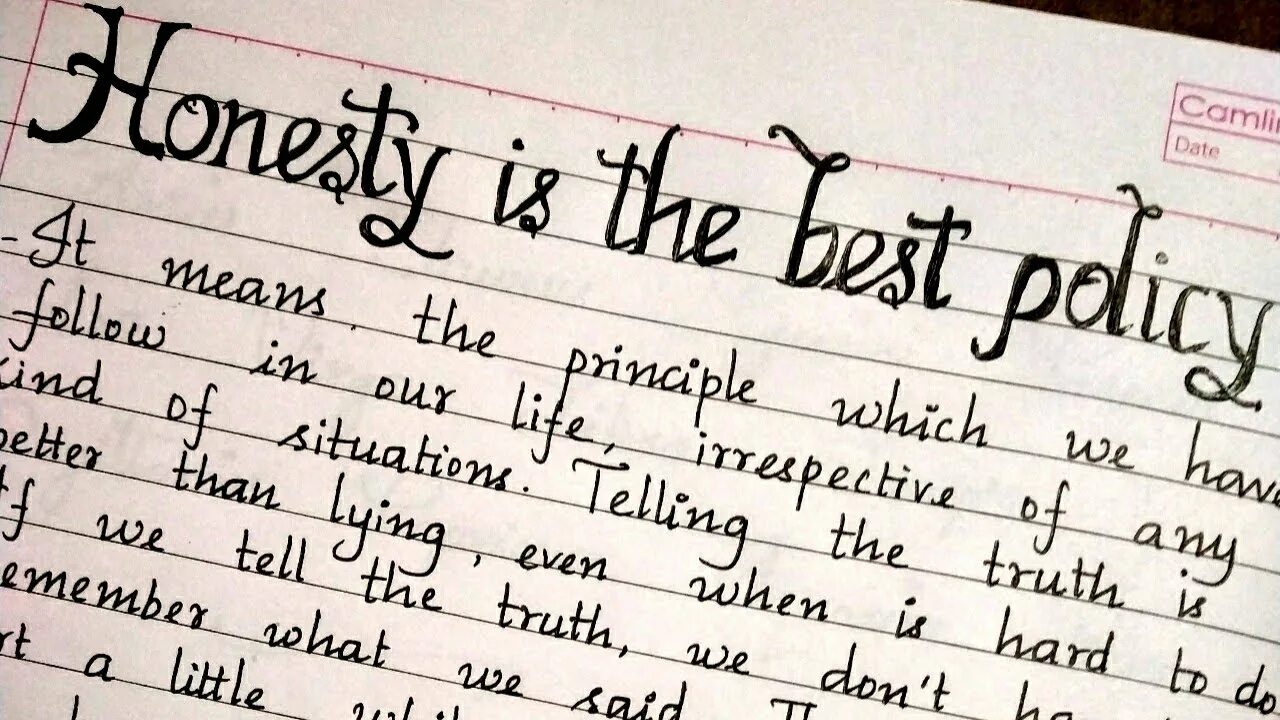 Honesty is the best policy
Camli
Date
- It means the principle which we have
follow in our life, irrespective of any
kind of situations. Telling the truth is
better than lying, even when is hard to do
If we tell the truth, we don't ha
emember what we said.
rt a little